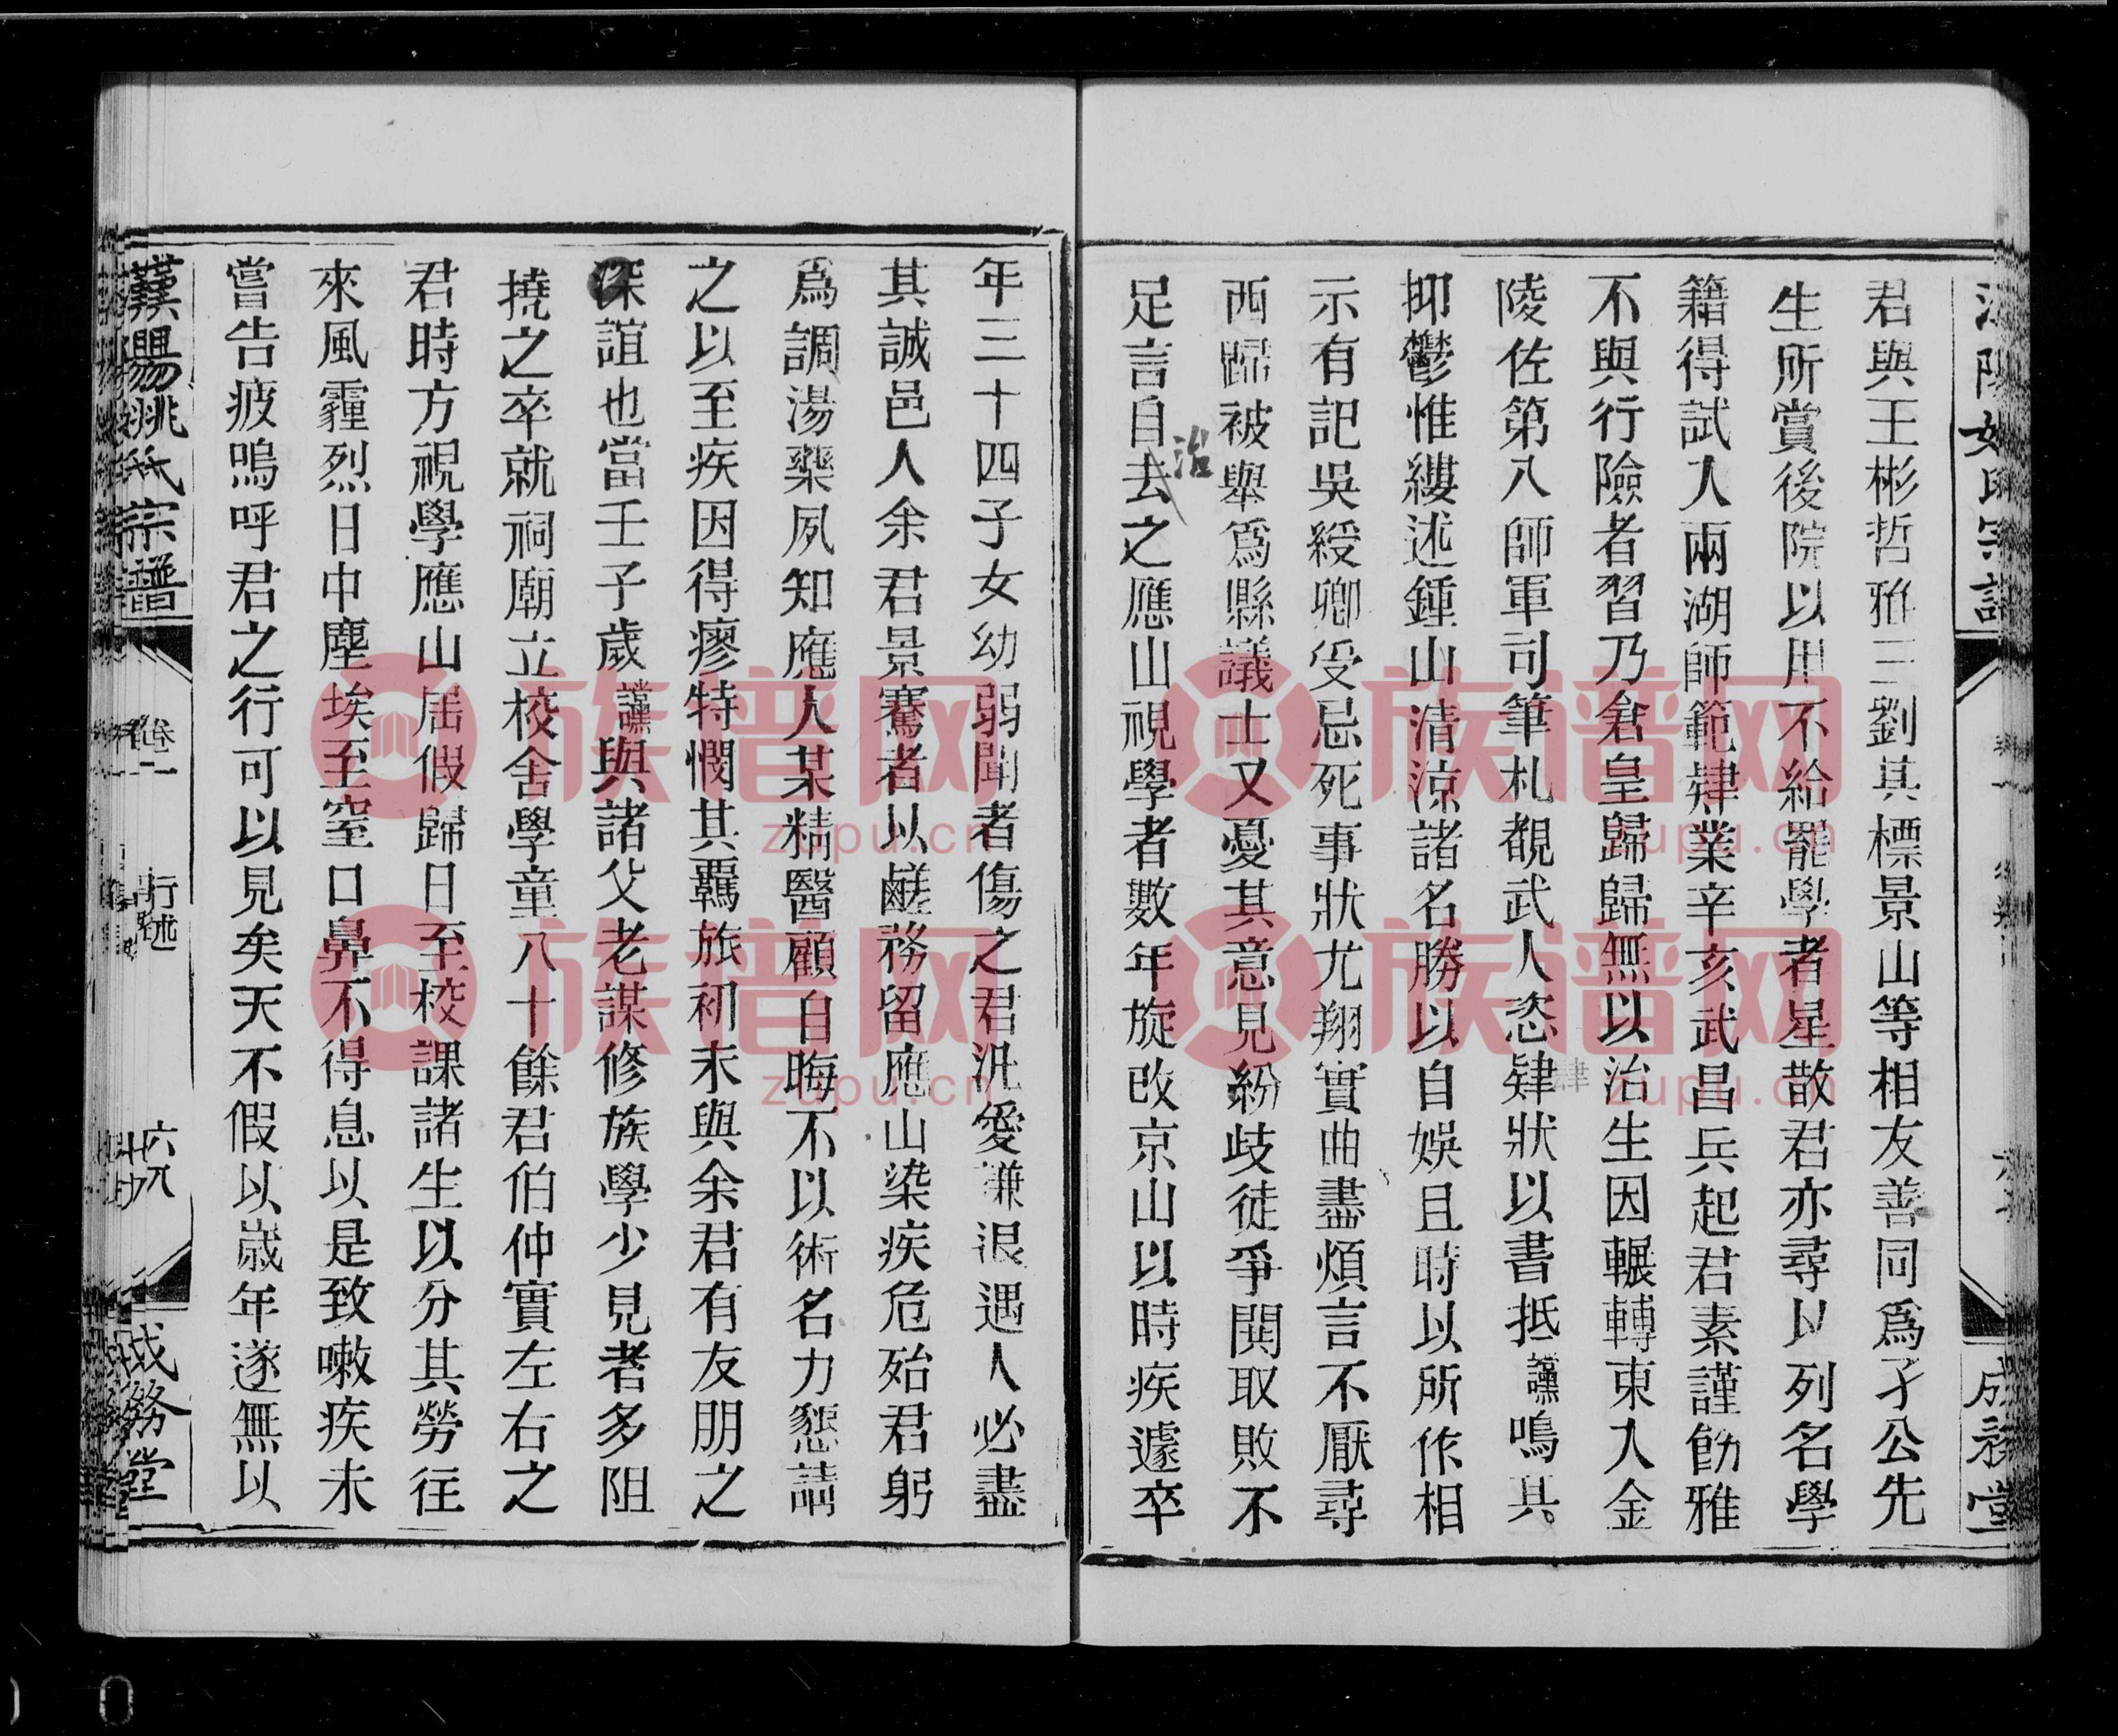 君與王彬哲雅三劉其標景山等相友善同爲孑公先
生所賞後院以用不給罷學者星散君亦尋以列名學
籍得試人兩湖師範肄業辛亥武昌兵起君素謹飭雅
不與行險者習乃倉皇歸歸無以治生因輾轉東入金
陵佐第八師軍司筆札覩武人恣肄狀以書抵讌鳴其
肆
抑鬱惟縷述鍾山清涼諸名勝以自娛且時以所作相
示有記吳綬卿受忌死事狀尤翔實曲盡煩言不厭尋
西歸被舉爲縣議士又憂其意見紛歧徒爭閧取敗不
足言自去之應山視學者數年旋改京山以時疾遽卒
治
年三十四子女幼弱聞者傷之君汎愛謙退遇人必盡
其誠邑人余君景騫者以鹺務留應山染疾危殆君躬
爲調湯藥夙知應人某精醫顧自晦不以術名力懇請
之以至疾因得瘳特憫其羈旅初未與余君有友朋之
深誼也當壬子歲讌與諸父老謀修族學少見者多阻
撓之卒就祠廟立校舍學童八十餘君伯仲實左右之
君時方視學應山屆假歸日至校課諸生以分其勞往
來風霾烈日中塵埃至窒口鼻不得息以是致嗽疾未
嘗告疲嗚呼君之行可以見矣天不假以歲年遂無以
漢陽姚氏宗譜
卷二
行述
六八
成務堂
族谱网
zupu.cn
族谱网
zupu.cn
族谱网
zupu.cn
族谱网
zupu.cn